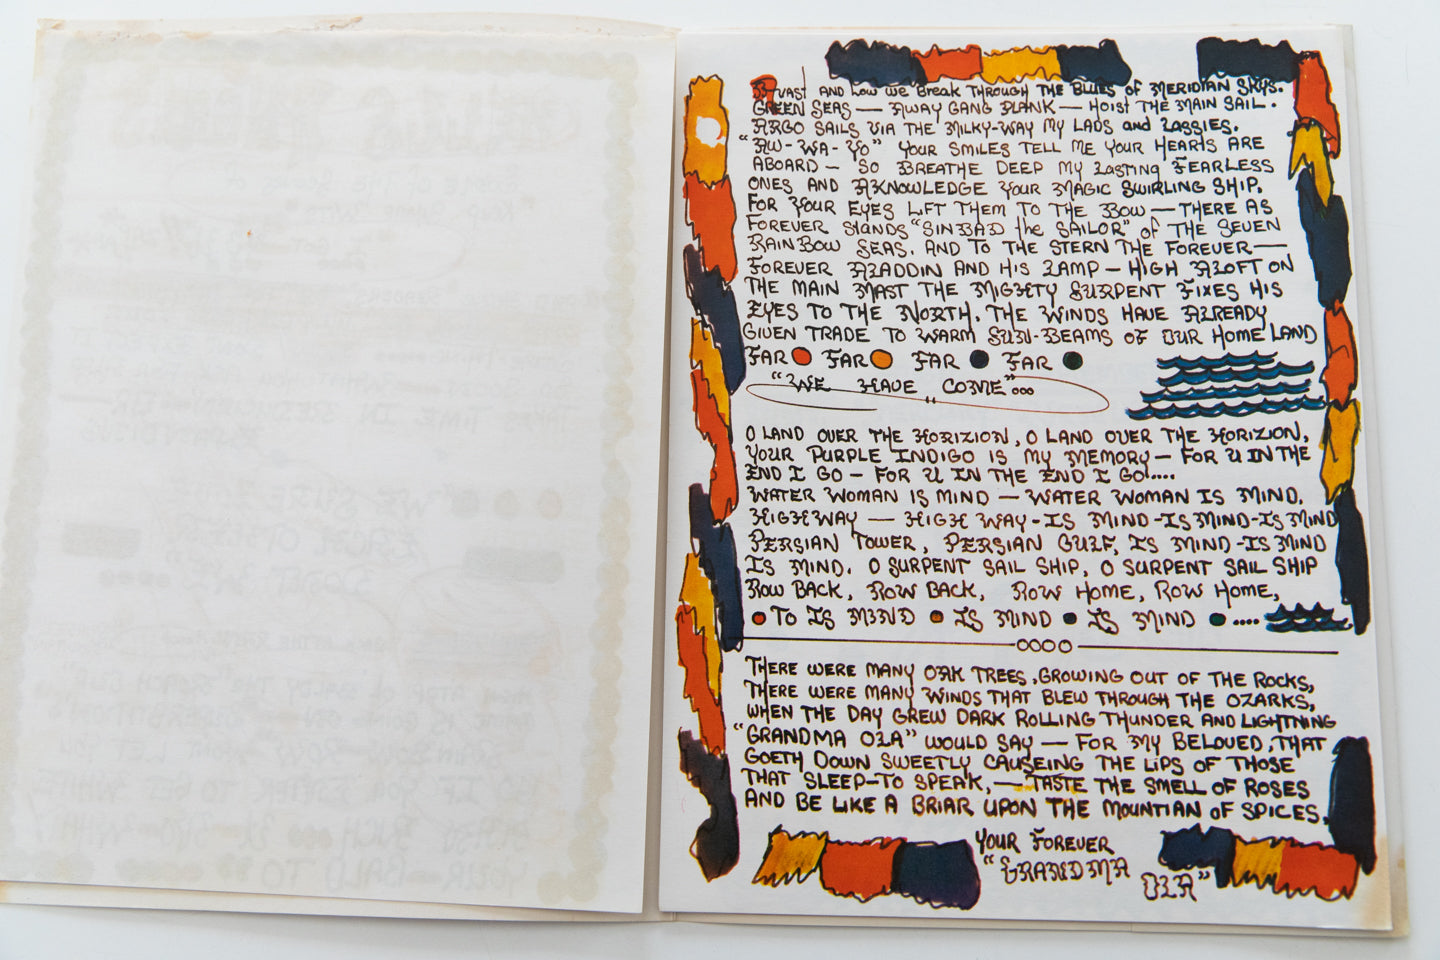 AVAST AND how we Break THROUGH THE BLUES of MERIDIAN SKYS.
GREEN SEAS — AWAY GANG PLANK — HOIST THE MAIN SAIL.
ARGO SAILS VIA THE MILKY-WAY MY LADS and LASSIES.
"AW-WA-YO" YOUR SMILES TELL ME YOUR HEARTS ARE
ABOARD — SO BREATHE DEEP MY LASTING FEARLESS
ONES AND AKNOWLEDGE YOUR MAGIC SWIRLING SHIP.
FOR YOUR EYES LIFT THEM TO THE BOW — THERE AS
FOREVER STANDS "SINBAD the SAILOR" of THE SEVEN
RAINBOW SEAS. AND TO THE STERN THE FOREVER —
FOREVER ALADDIN AND HIS LAMP — HIGH ALOFT ON
THE MAIN MAST THE MIGHTY SURPENT FIXES HIS
EYES TO THE NORTH. THE WINDS HAVE ALREADY
GIVEN TRADE TO WARM SUN-BEAMS OF OUR HOME LAND
FAR FAR FAR FAR
"WE HAVE COME"...
O LAND OVER THE HORIZION, O LAND OVER THE HORIZION,
YOUR PURPLE INDIGO IS MY MEMORY — FOR U IN THE
END I GO — FOR U IN THE END I GO....
WATER WOMAN IS MIND — WATER WOMAN IS MIND.
HIGHWAY — HIGH WAY - IS MIND - IS MIND - IS MIND
PERSIAN TOWER, PERSIAN GULF, IS MIND - IS MIND
IS MIND. O SURPENT SAIL SHIP, O SURPENT SAIL SHIP
ROW BACK, ROW BACK, ROW HOME, ROW HOME,
TO IS MIND IS MIND IS MIND ....
THERE WERE MANY OAK TREES, GROWING OUT OF THE ROCKS,
THERE WERE MANY WINDS THAT BLEW THROUGH THE OZARKS,
WHEN THE DAY GREW DARK ROLLING THUNDER AND LIGHTNING
"GRANDMA OLA" WOULD SAY — FOR MY BELOVED, THAT
GOETH DOWN SWEETLY CAUSEING THE LIPS OF THOSE
THAT SLEEP-TO SPEAK, — TASTE THE SMELL OF ROSES
AND BE LIKE A BRIAR UPON THE MOUNTIAN OF SPICES,
YOUR FOREVER
"GRANDMA
OLA"